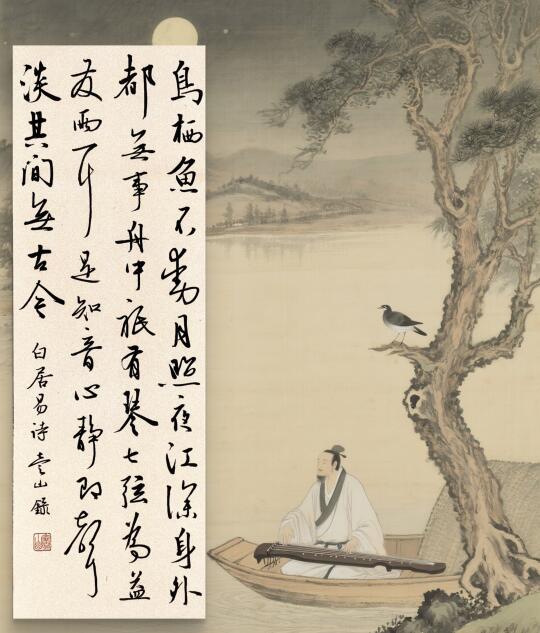 鳥栖魚不動月照夜江深身外
都無事舟中祇有琴七弦為益
友兩耳是知音心靜即聲
淡其间無古今
白居易诗山錄